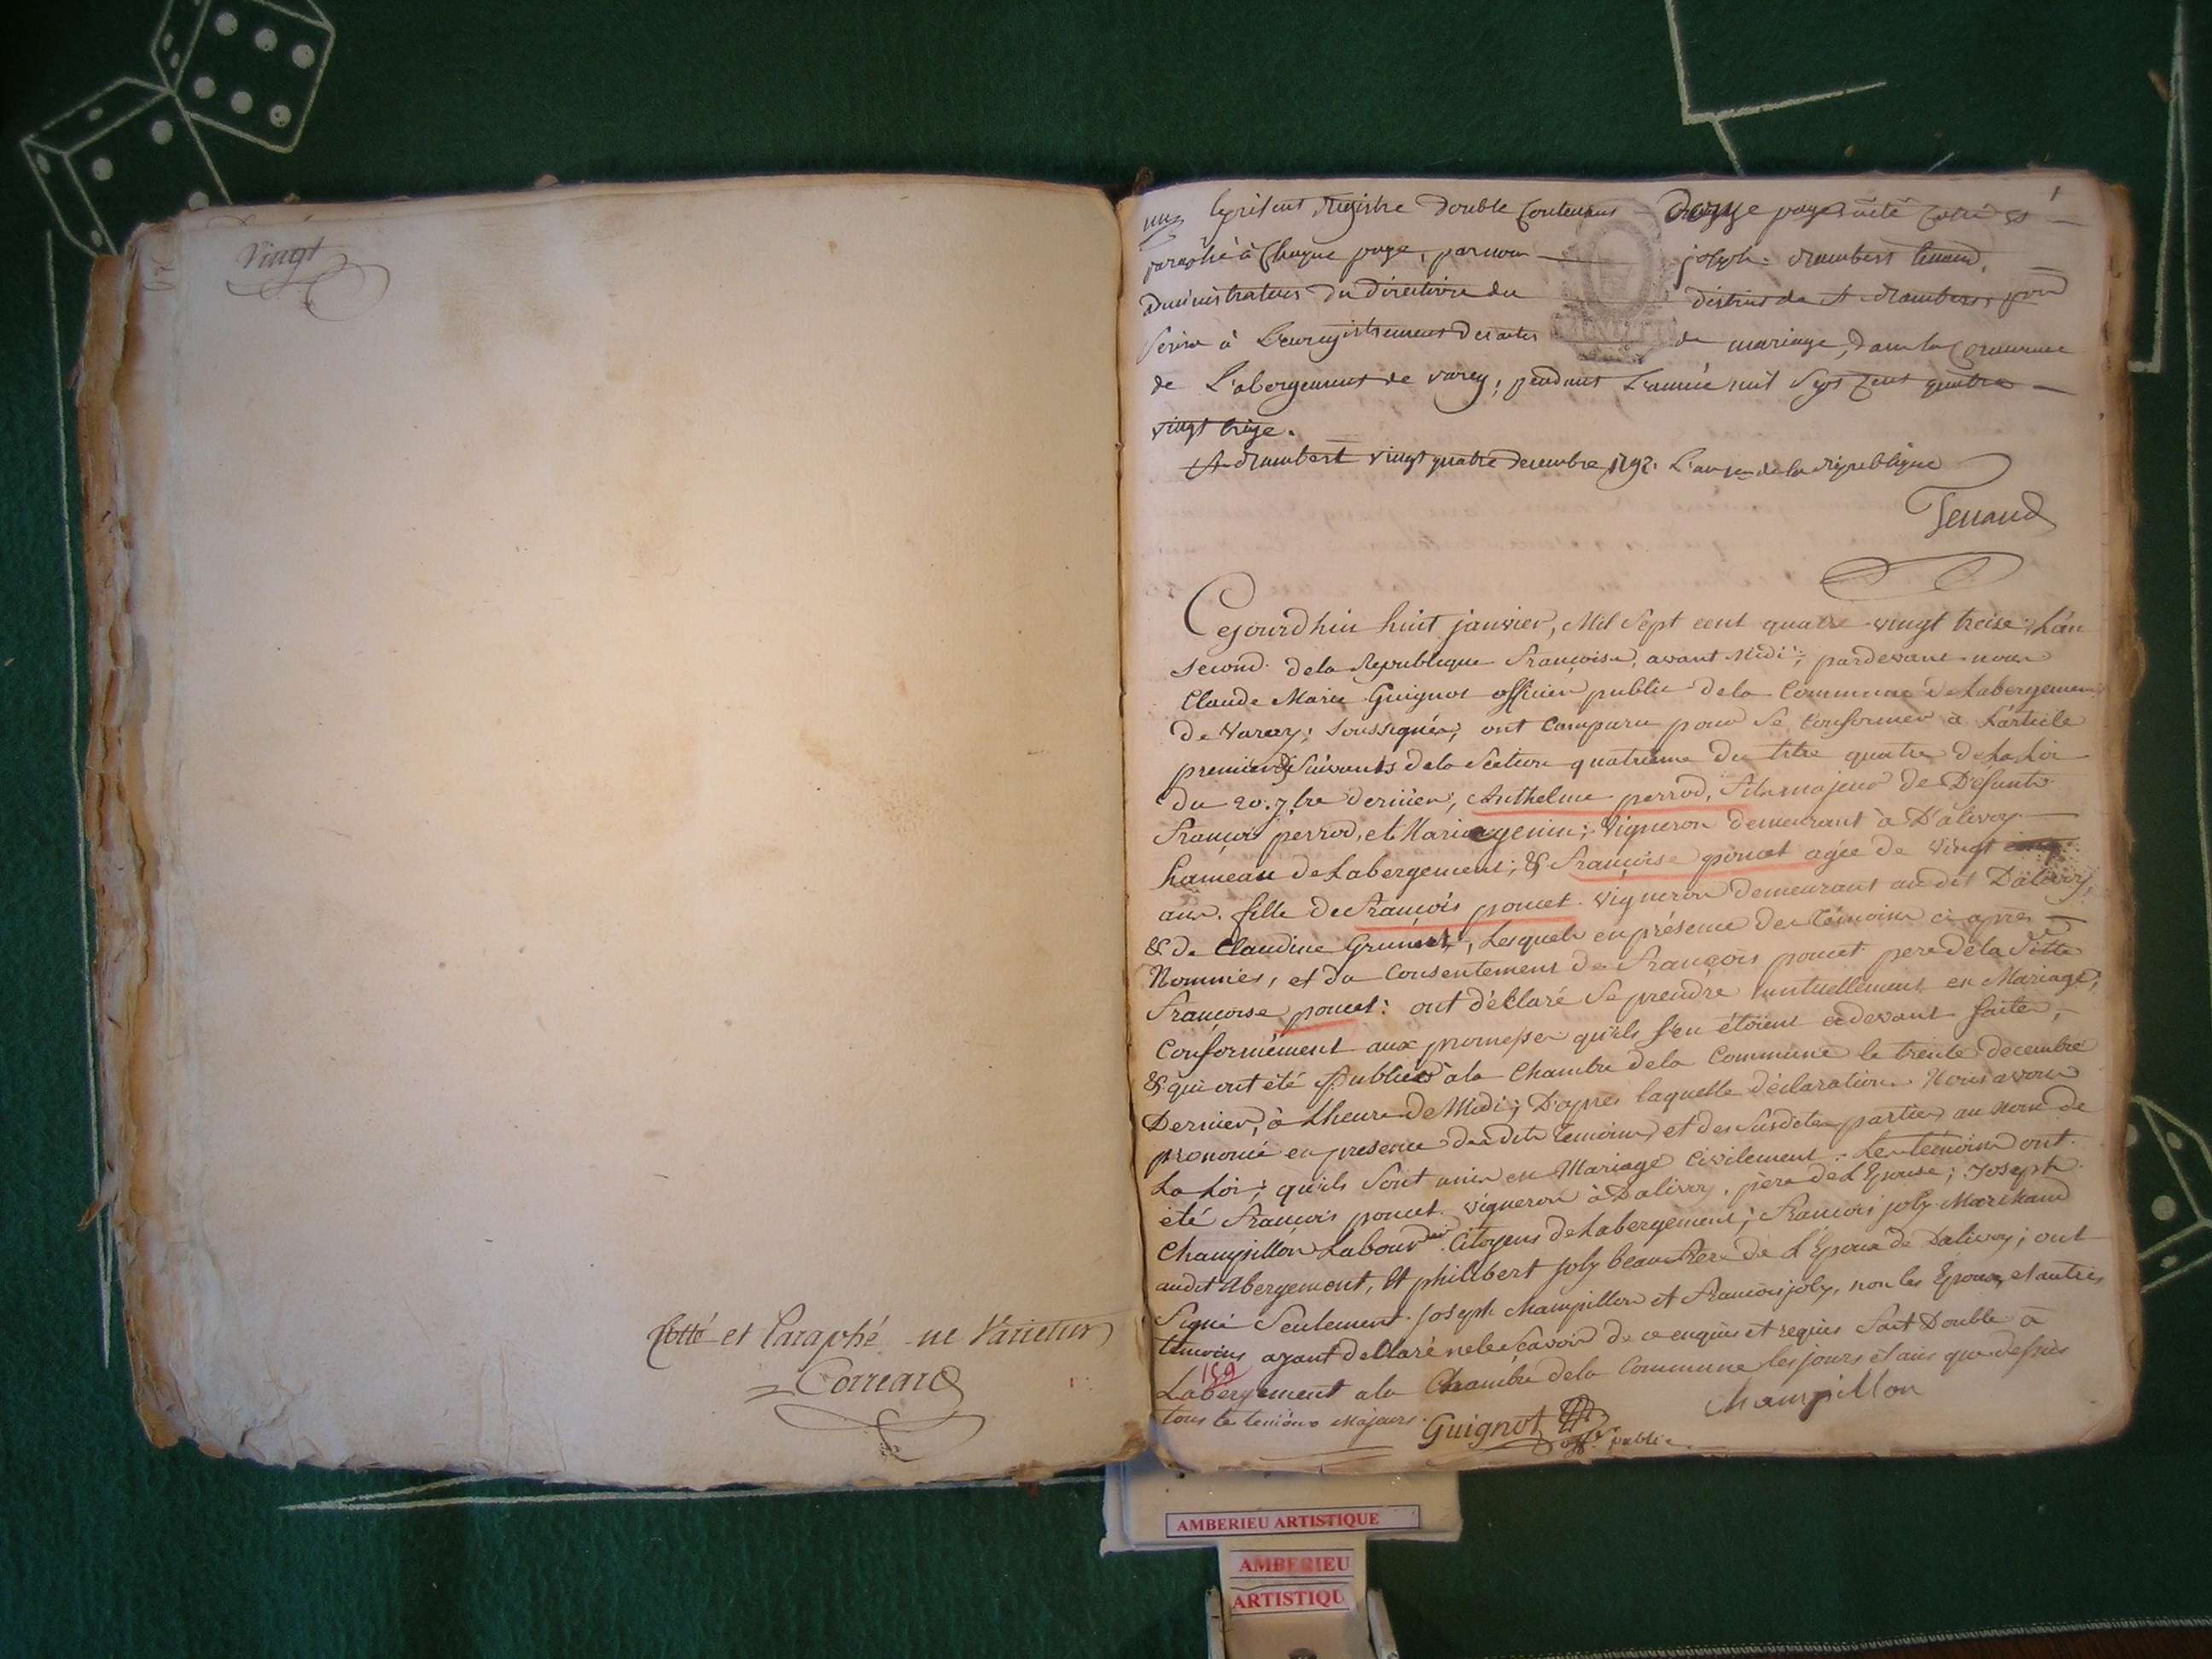 vingt
Cotté et Paraphé ne Varietur
Corrard
un
le présent Registre double contenant douze pages côté cotté et
paraphé à chaque page, par nous joseph rambert tenand,
administrateur du directoire du district de St rambert, pour
servir à L'enregistrement des actes de mariage, dans la commune
de L'abergement de varey, pendant L'année mil sept cent quatre
vingt treize.
St rambert vingt quatre decembre 1792. L'an 1er de la république
Tenand
Cejourd'huy huit janvier, Mil Sept cent quatre vingt treize, L'an
second de la Republique Françoise, avant Midi, pardevant nous
Claude Marie Guignot officier public de la Commune de Labergement
de Varey, soussignés, ont Comparu pour se Conformer à L'article
premier & suivants de la Section quatrième du titre quatre de La Loi
du 20. 7.bre dernier, Anthelme perrod, fils majeur de Defunts
François perrod, et Marie genin; Vigneron demeurant à D'alivoy
hameau de Labergement, & Françoise poncet agée de vingt
ans. fille de François poncet Vigneron demeurant au dit D'alivoy,
& de Claudine Grumet, Lesquels en présence des témoins ci apres
Nommés, et du Consentement de François poncet pere de la ditte
Françoise poncet: ont déclaré se prendre mutuellement en Mariage,
Conformément aux promesses qu'ils s'en étoient cidevant faites,
& qui ont été Publiées à la Chambre de la Commune le trente decembre
Dernier, à L'heure de Midi; D'apres laquelle déclaration. Nous avons
prononcé en presence des dits temoins et des susdites parties au nom de
La Loi, qu'ils sont unis en Mariage Civilement. Les témoins ont
été François poncet vigneron à Dalivoy, père de L'Epouse; Joseph
Champillon Laboureur Citoyens de Labergement; François joly Marchand
audit Abergement, Et philibert joly beaufrere de L'Epoux de Dalivoy; ont
Signé Seulement Joseph champillon et François joly, non les Epoux, et autres
temoins ayant déclaré ne le sçavoir de ce enquis et requis fait Double à
159
Labergement a la Chambre de la Commune les jours et ans que dessus
tous les temoins Majeurs.
Guignot
off. public
Champillon
AMBERIEU ARTISTIQUE
AMBERIEU
ARTISTIQU